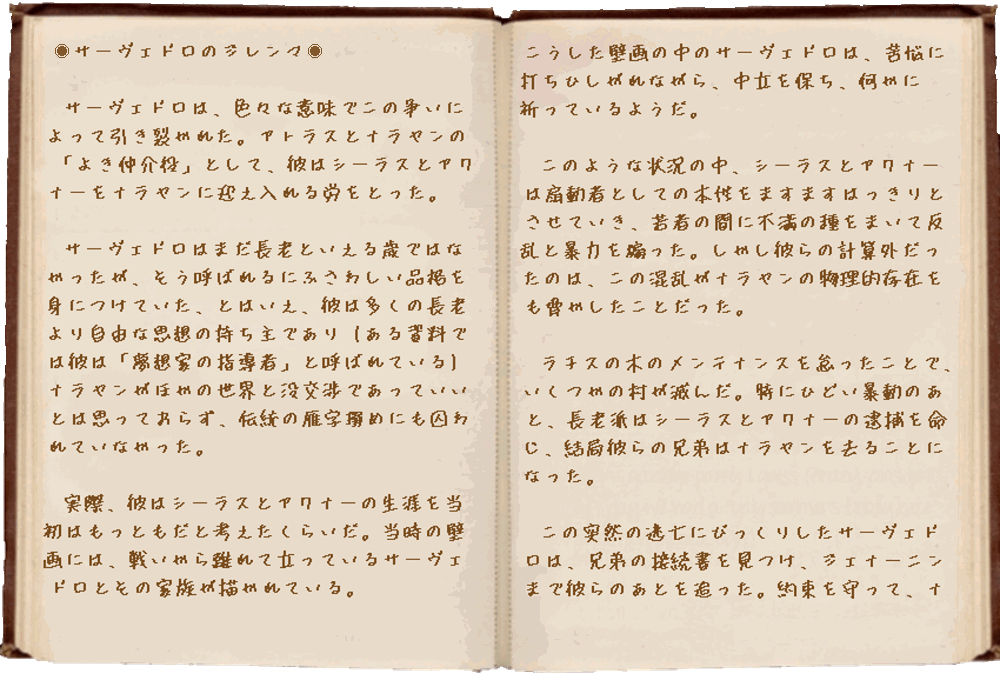 ◉サーヴェドロのジレンマ◉
サーヴェドロは、色々な意味でこの争いに
よって引き裂かれた。アトラスとナラヤンの
「よき仲介役」として、彼はシーラスとアクナ
ーをナラヤンに迎え入れる労をとった。
サーヴェドロはまだ長老といえる歳ではな
かったが、そう呼ばれるにふさわしい品格を
身につけていた、とはいえ、彼は多くの長老
より自由な思想の持ち主であり(ある資料で
は彼は「夢想家の指導者」と呼ばれている)
ナラヤンがほかの世界と没交渉であっていい
とは思っておらず、伝統の雁字搦めにも囚わ
れていなかった。
実際、彼はシーラスとアクナーの生涯を当
初はもっともだと考えたくらいだ。当時の壁
画には、戦いから離れて立っているサーヴェ
ドロとその家族が描かれている。
こうした壁画の中のサーヴェドロは、苦悩に
打ちひしがれながら、中立を保ち、何かに
祈っているようだ。
このような状況の中、シーラスとアクナー
は扇動者としての本性をますますはっきりと
させていき、若者の間に不満の種をまいて反
乱と暴力を煽った。しかし彼らの計算外だっ
たのは、この混乱がナラヤンの物理的存在を
も脅かしたことだった。
ラチスの木のメンテナンスを怠ったことで、
いくつかの村が滅んだ。特にひどい暴動のあ
と、長老派はシーラスとアクナーの逮捕を命
じ、結局彼らの兄弟はナラヤンを去ることに
なった。
この突然の逃亡にびっくりしたサーヴェド
ロは、兄弟の接続書を見つけ、ジェナーニン
まで彼らのあとを追った。約束を守って、ナ